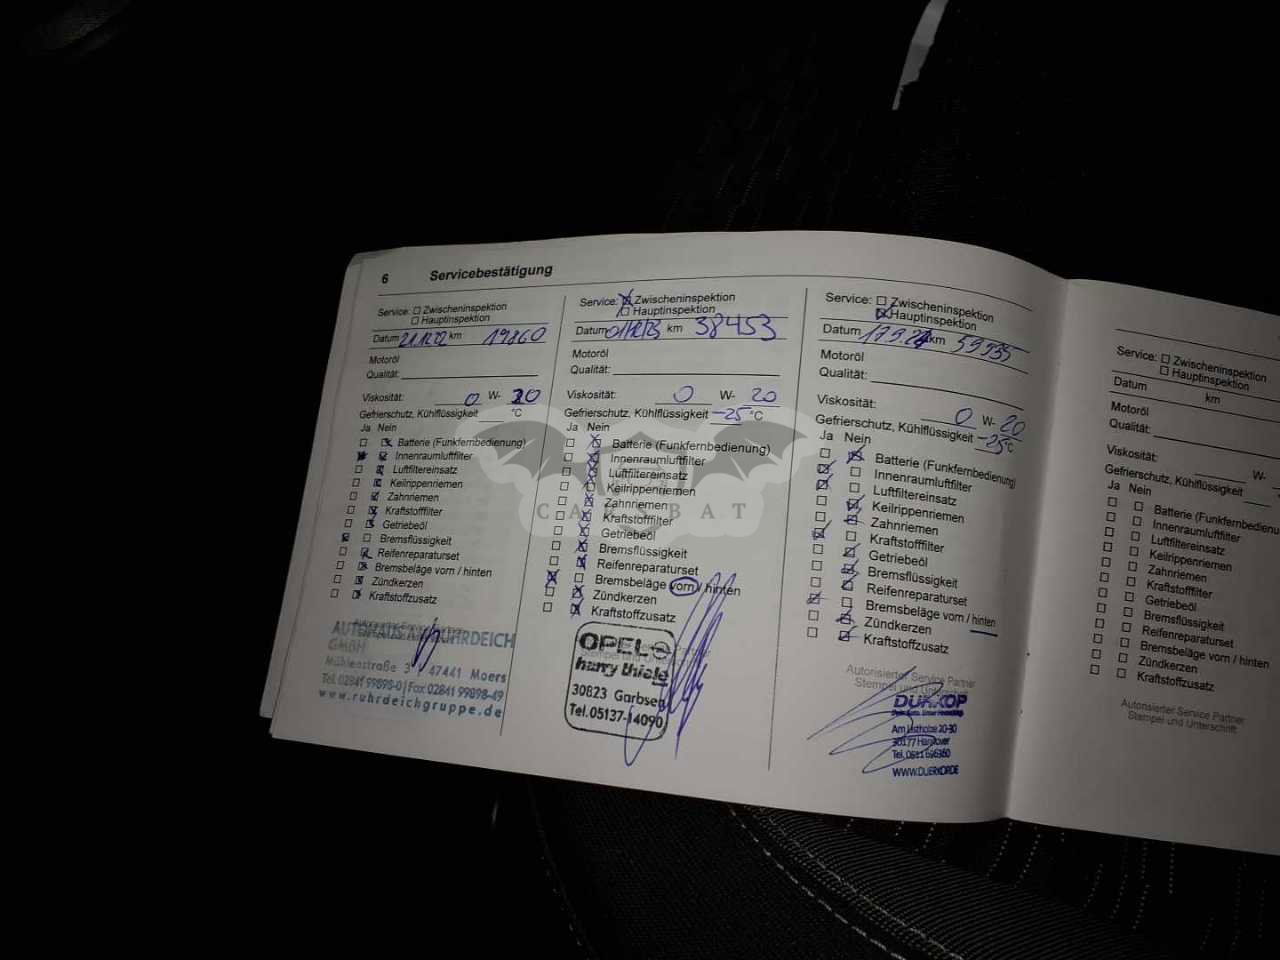 6 Servicebestätigung
Service: Zwischeninspektion
Hauptinspektion
Datum 21.12.22 km 19860
Motoröl
Qualität:
Viskosität: 0 W- 20
Gefrierschutz, Kühlflüssigkeit °C
Ja Nein
Batterie (Funkfernbedienung)
Innenraumluftfilter
Luftfiltereinsatz
Keilrippenriemen
Zahnriemen
Kraftstofffilter
Getriebeöl
Bremsflüssigkeit
Reifenreparaturset
Bremsbeläge vorn / hinten
Zündkerzen
Kraftstoffzusatz
AUTOHAUS AM RUHRDEICH
GmbH
Mühlenstraße 47441 Moers
Tel. 02841 99898-0 | Fax 02841 99898-49
www.ruhrdeichgruppe.de
Service: Zwischeninspektion
Hauptinspektion
Datum 01.12.23 km 38453
Motoröl
Qualität:
Viskosität: 0 W- 20
Gefrierschutz, Kühlflüssigkeit -25 °C
Ja Nein
Batterie (Funkfernbedienung)
Innenraumluftfilter
Luftfiltereinsatz
Keilrippenriemen
Zahnriemen
Kraftstofffilter
Getriebeöl
Bremsflüssigkeit
Reifenreparaturset
Bremsbeläge vorn / hinten
Zündkerzen
Kraftstoffzusatz
OPEL
harry thiele
30823 Garbsen
Tel. 05137-14090
Service: Zwischeninspektion
Hauptinspektion
Datum 17.9.24 km 59935
Motoröl
Qualität:
Viskosität: 0 W- 20
Gefrierschutz, Kühlflüssigkeit -25 °C
Ja Nein
Batterie (Funkfernbedienung)
Innenraumluftfilter
Luftfiltereinsatz
Keilrippenriemen
Zahnriemen
Kraftstofffilter
Getriebeöl
Bremsflüssigkeit
Reifenreparaturset
Bremsbeläge vorn / hinten
Zündkerzen
Kraftstoffzusatz
Autorisierter Service Partner
Stempel und Unterschrift
DÜRKOP
Am Listholze 20-30
30177 Hannover
WWW.DUERKOP.DE
Service: Zwischeninspektion
Hauptinspektion
Datum km
Motoröl
Qualität:
Viskosität: W-
Gefrierschutz, Kühlflüssigkeit
Ja Nein
Batterie (Funkfernbedienu
Innenraumluftfilter
Luftfiltereinsatz
Keilrippenriemen
Zahnriemen
Kraftstofffilter
Getriebeöl
Bremsflüssigkeit
Reifenreparaturset
Bremsbeläge vorn / hinten
Zündkerzen
Kraftstoffzusatz
Autorisierter Service Partner
Stempel und Unterschrift
CARSBAT